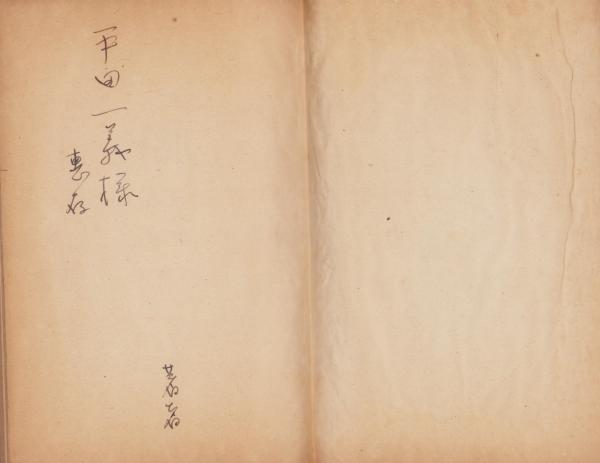 平田一義様
惠存
著者